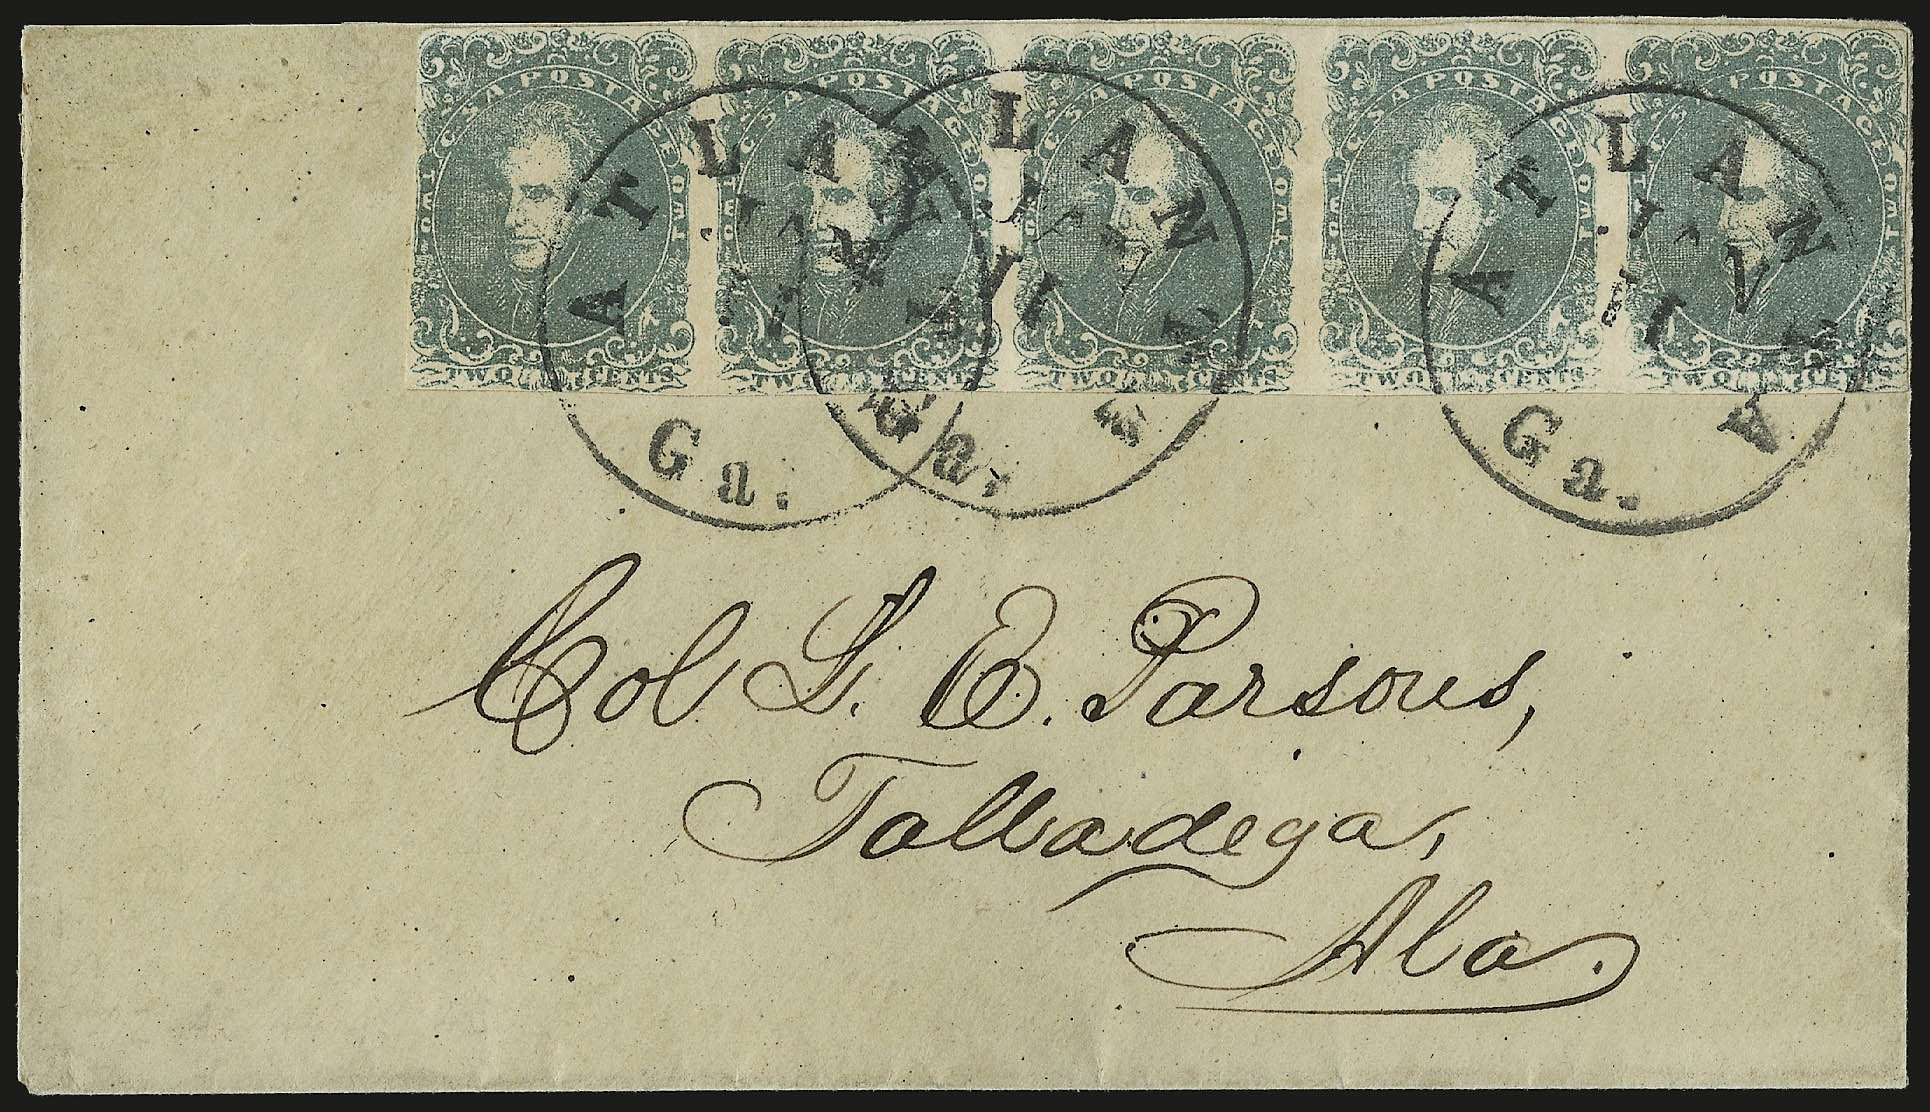 C S A POSTAGE TWO CENTS TWO
C S A POSTAGE TWO CENTS TWO
C S A POSTAGE TWO CENTS TWO
C S A POSTAGE TWO CENTS TWO
C S A POSTAGE TWO CENTS TWO
ATLANTA Ga.
JAN
ATLANTA Ga.
JAN
11
ATLANTA Ga.
JAN
11
Col L. E. Parsons,
Talladega,
Ala.